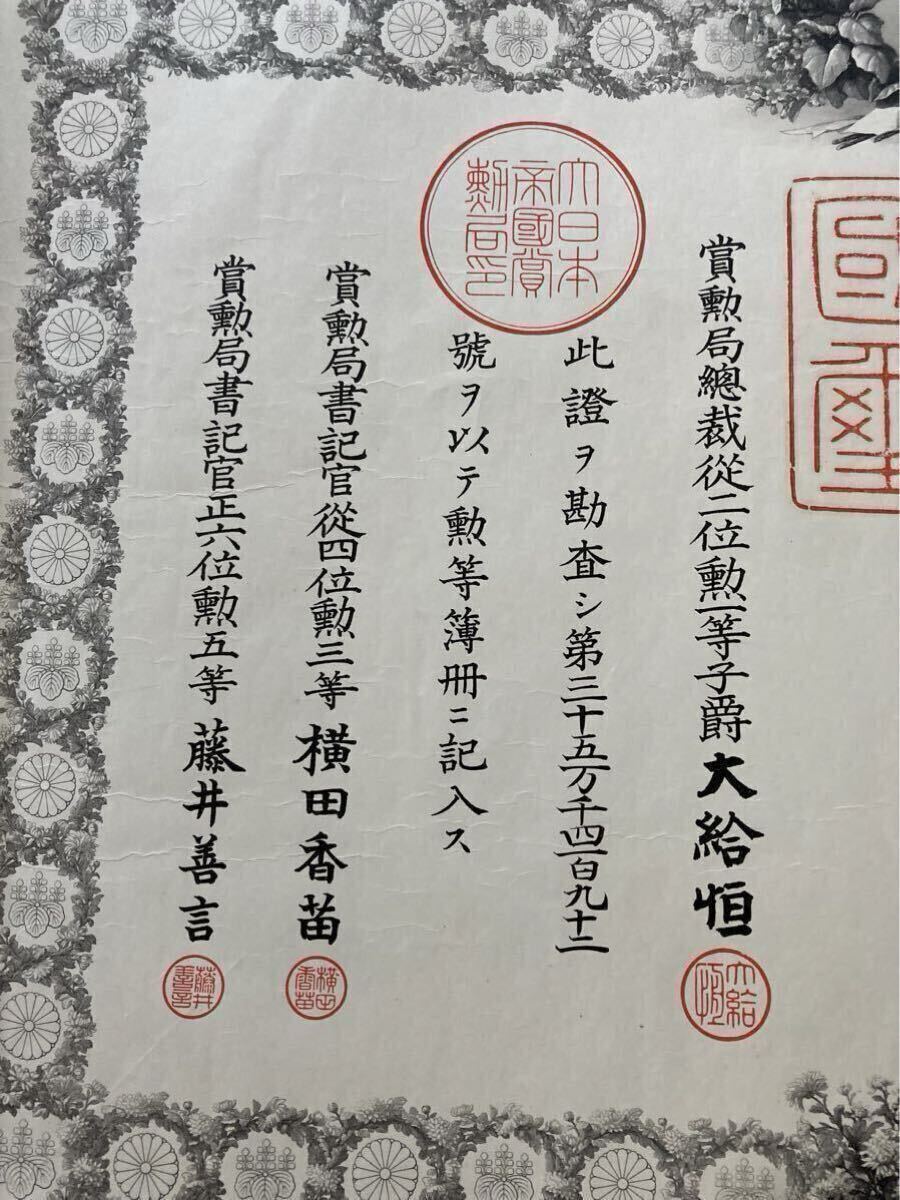 國璽
賞勲局總裁從二位勲一等子爵大給恒
大給恒
大日本帝國賞勲局印
此證ヲ勘査シ第三十五万千四百九十二
號ヲ以テ勲等簿冊ニ記入ス
賞勲局書記官從四位勲三等横田香苗
横田香苗
賞勲局書記官正六位勲五等藤井善言
藤井善言